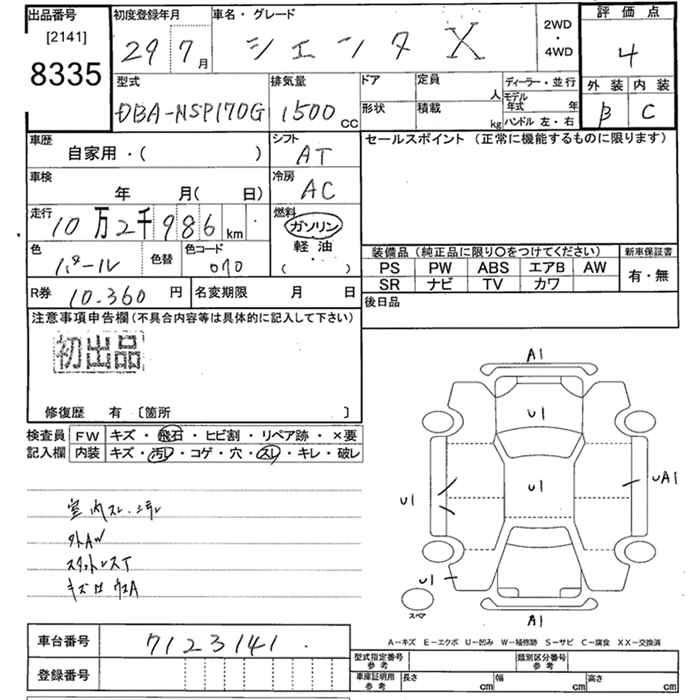 出品番号
[2141]
8335
初度登録年月
29 7月
車名・グレード
シエンタ X
2WD
・
4WD
評価点
4
外装 内装
B C
型式
DBA-NSP170G
排気量
1500cc
ドア
形状
定員 人
積載 kg
ディーラー・並行
モデル年式 年
ハンドル 左・右
車歴
自家用・( )
シフト
AT
車検
年 月( 日)
冷房
AC
走行
10万2千986km
燃料
ガソリン
軽油
( )
色
パール
色替
色コード
070
R券 10.360 円
名変期限 月 日
セールスポイント (正常に機能するものに限ります)
装備品(純正品に限り〇をつけてください)
新車保証書
PS PW ABS エアB AW
有・無
SR ナビ TV カワ
後日品
注意事項申告欄(不具合内容等は具体的に記入して下さい)
初出品
修復歴 有 〔箇所 〕
検査員
記入欄
FW キズ・飛石・ヒビ割・リペア跡・×要
内装 キズ・汚レ・コゲ・穴・スレ・キレ・破レ
室内スレ・
外AW
キズ
車台番号 7123141
登録番号
A1
U1
U1
U1
UA1
U1
スペア
A1
A―キズ E―エクボ U―凹み W―補修跡 S―サビ C―腐食 XX―交換済
型式指定番号
参考
類別区分番号
参考
車庫証明用
参考
長さ cm
幅 cm
高さ cm